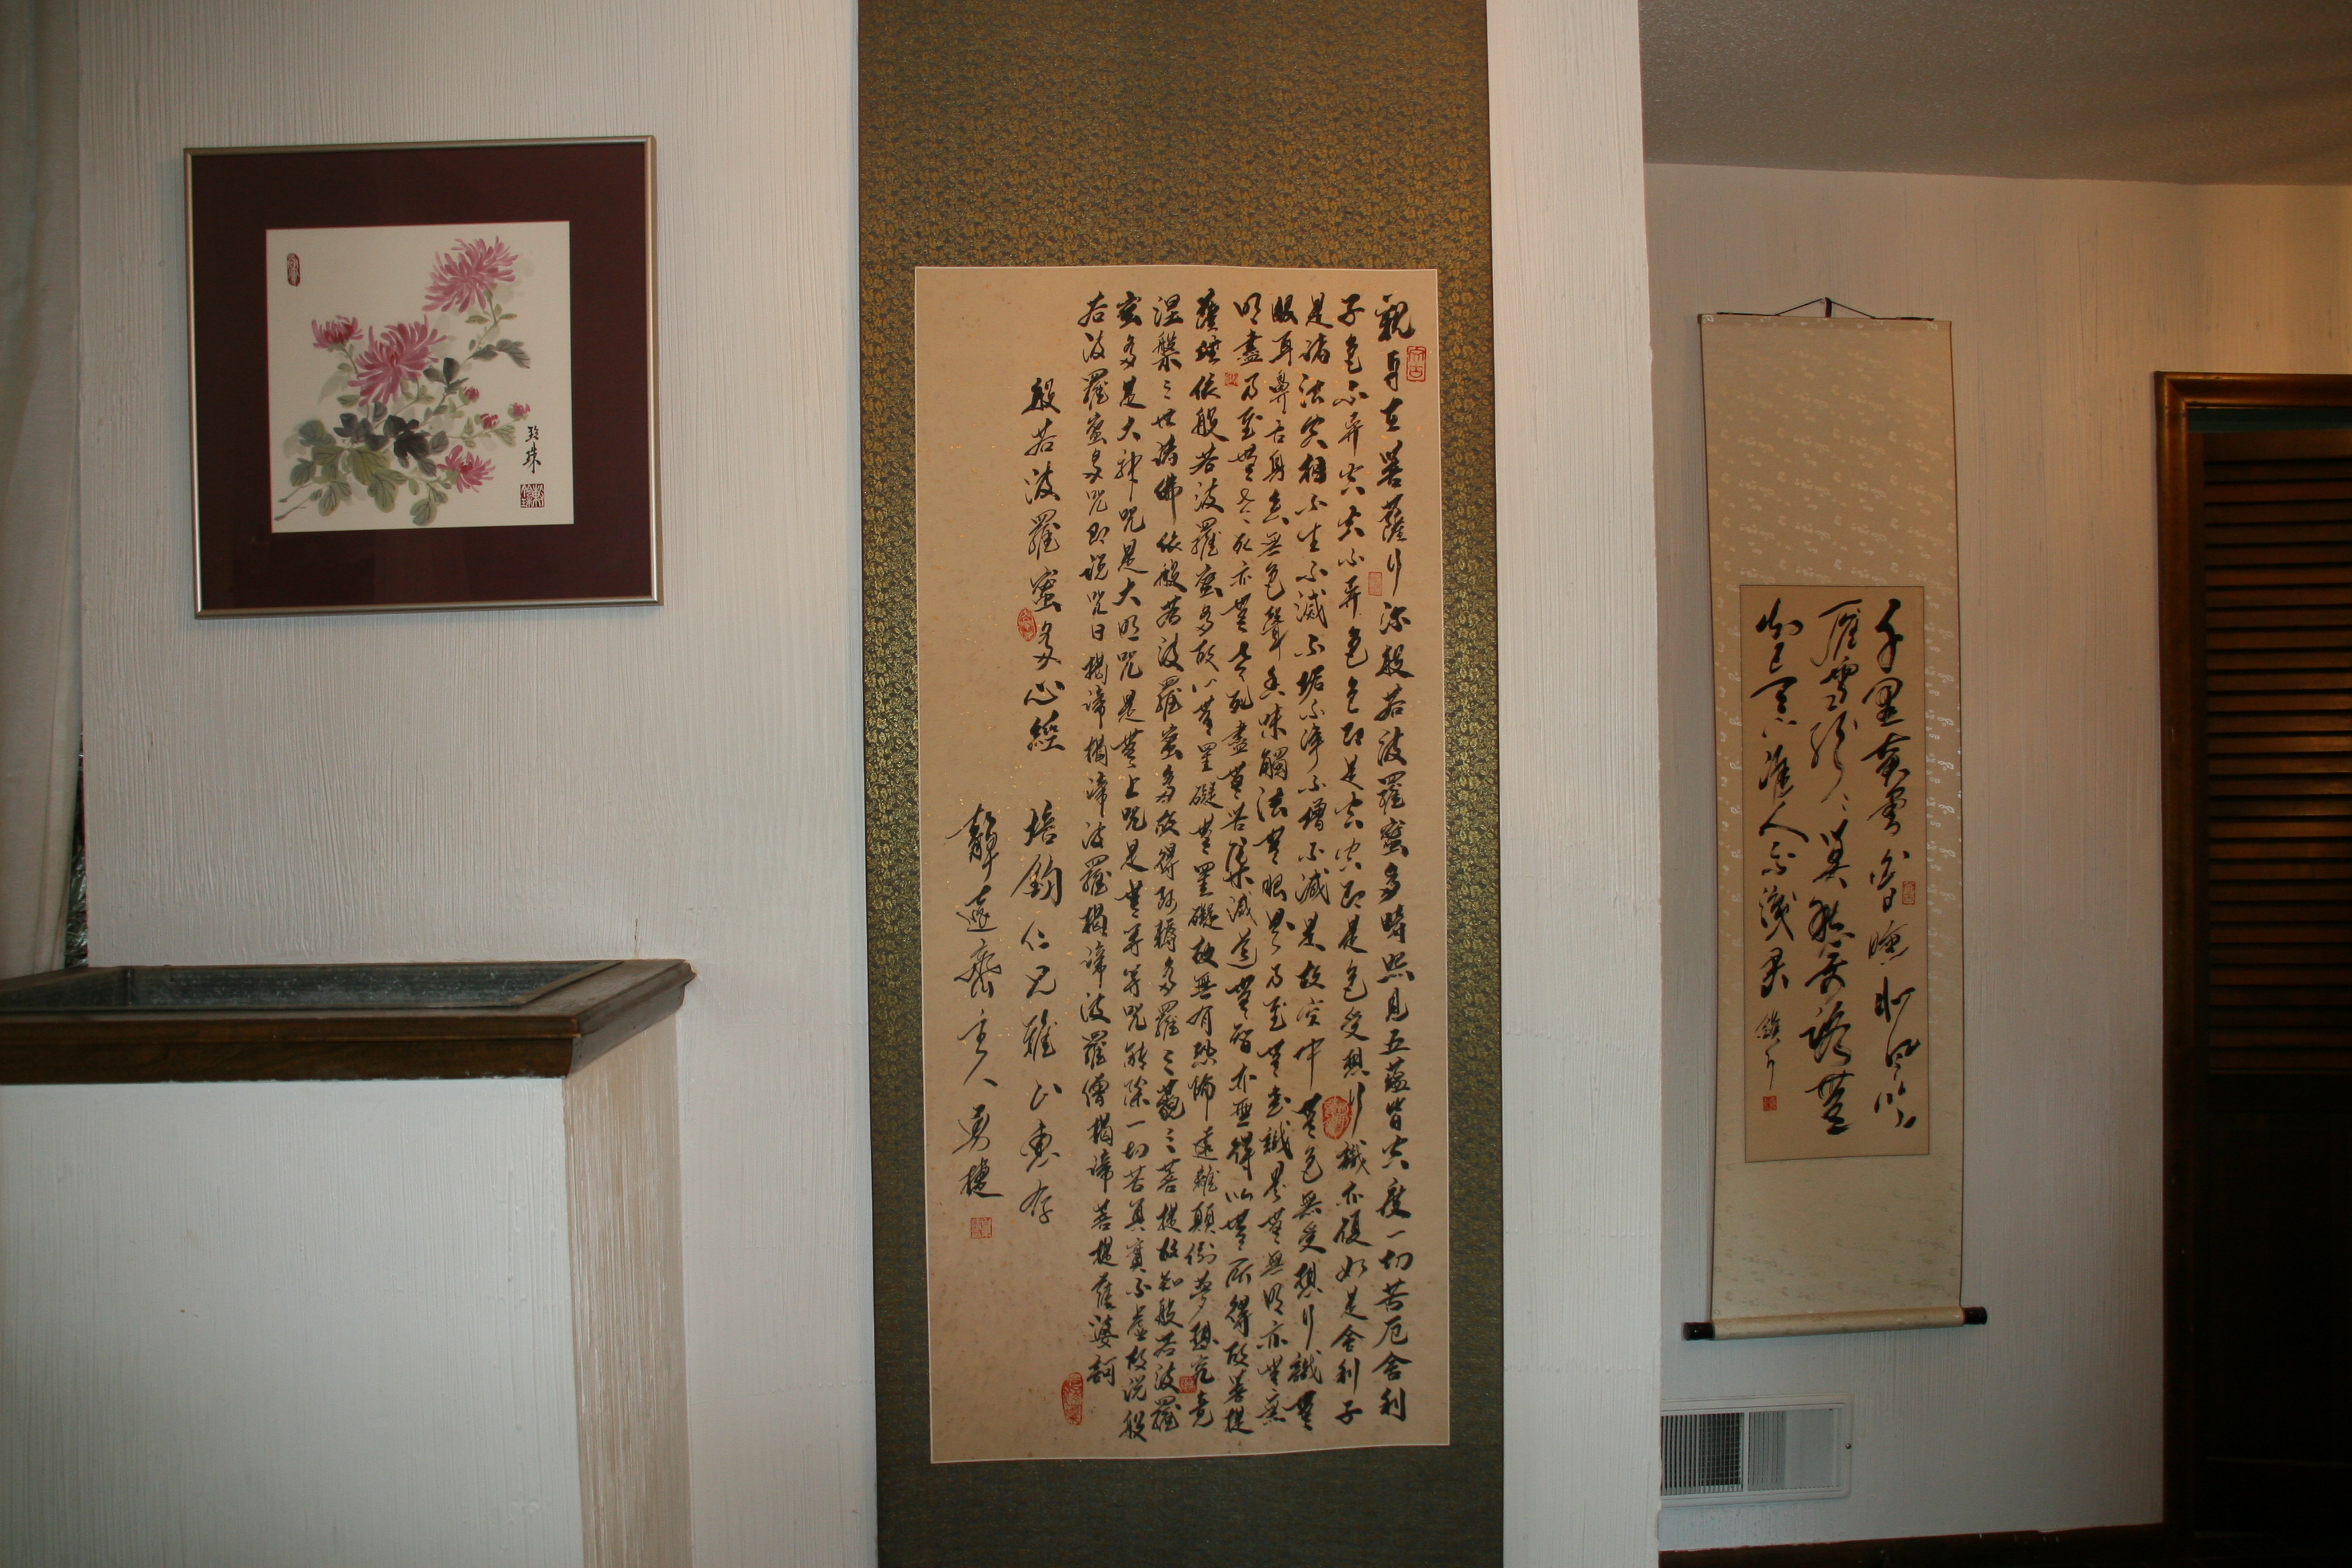 觀自在菩薩行深般若波羅蜜多時照見五蘊皆空度一切苦厄舍利
子色不異空空不異色色即是空空即是色受想行識亦復如是舍利子
是諸法空相不生不滅不垢不淨不增不減是故空中無色無受想行識無
眼耳鼻舌身意無色聲香味觸法無眼界乃至無意識界無無明亦無無
明盡乃至無老死亦無老死盡無苦集滅道無智亦無得以無所得故菩提
薩埵依般若波羅蜜多故心無罣礙無罣礙故無有恐怖遠離顛倒夢想究竟
涅槃三世諸佛依般若波羅蜜多故得阿耨多羅三藐三菩提故知般若波羅
蜜多是大神咒是大明咒是無上咒是無等等咒能除一切苦真實不虛故說般
若波羅蜜多咒即說咒曰揭諦揭諦波羅揭諦波羅僧揭諦菩提薩婆訶
般若波羅蜜多心經
培鈞仁兄雅正惠存
靜遠齋主人勇捷
千里黃雲白日曛北風吹
雁雪紛紛莫愁前路無
知己天下誰人不識君